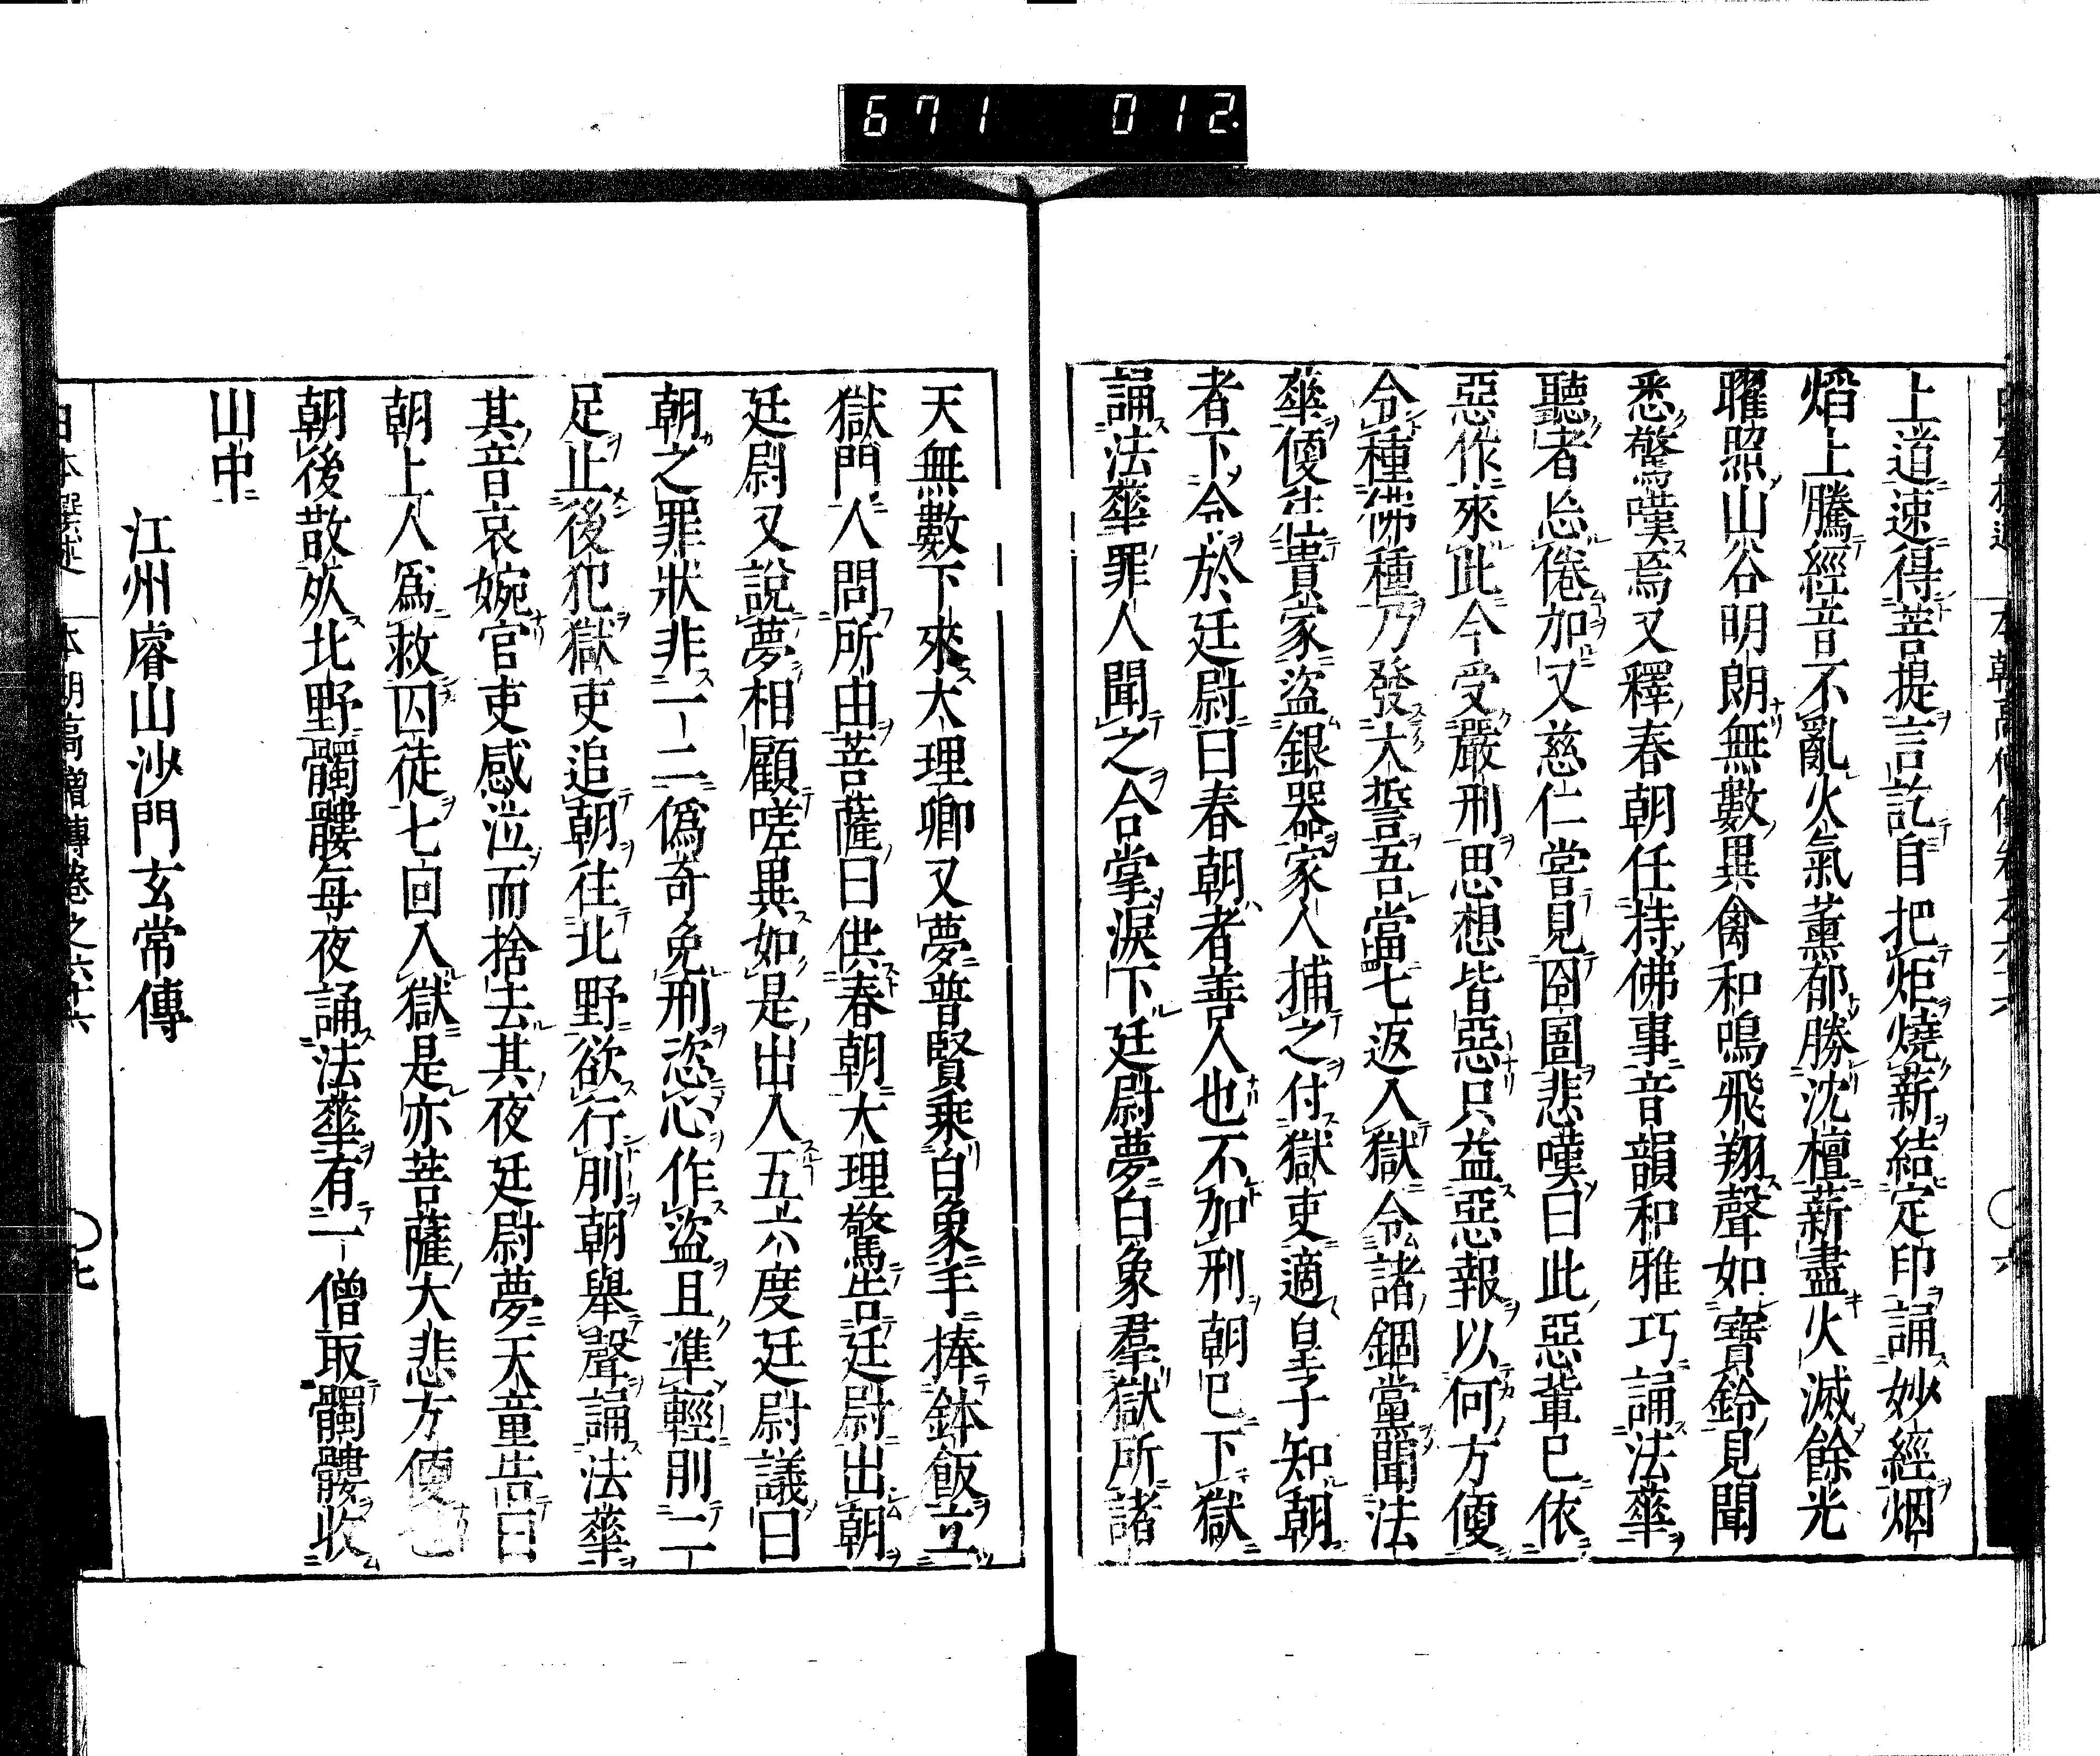 671 012.
上道速得菩提言訖自把炬燒薪結定印誦妙經烟
熖上騰經音不亂火氣薰郁勝沈檀薪盡火滅餘光
曜照山谷明朗無數異禽和鳴飛翔聲如寶鈴見聞
悉驚嘆焉又釋春朝任持佛事音韻和雅巧誦法華
聽者忘倦加又慈仁嘗見囹圄悲嘆曰此惡輩已依
惡作來此今受嚴刑思想皆惡只益惡報以何方便
令種佛種乃發大誓吾當七返入獄令諸錮黨聞法
華便往貴家盜銀器家人捕之付獄吏適皇子知朝
者下令於廷尉曰春朝者善人也不加刑朝已下獄
誦法華罪人聞之合掌淚下廷尉夢白象羣獄所諸
天無數下來大理卿又夢普賢乘白象手捧鉢飯立
獄門人問所由菩薩曰供春朝大理驚告廷尉出朝
廷尉又說夢相顧嗟異如是出入五六度廷尉議曰
朝之罪狀非一二僞奇免刑恣心作盜且準輕刖二
足止後犯獄吏追朝往北野欲行刖朝舉聲誦法華
其音哀婉官吏感泣而捨去其夜廷尉夢天童告曰
朝上人爲救囚徒七回入獄是亦菩薩大悲方便也
朝後敬於北野髑髏每夜誦法華有一僧取髑髏收
山中
江州睿山沙門玄常傳
本朝高僧傳卷之六十六 七